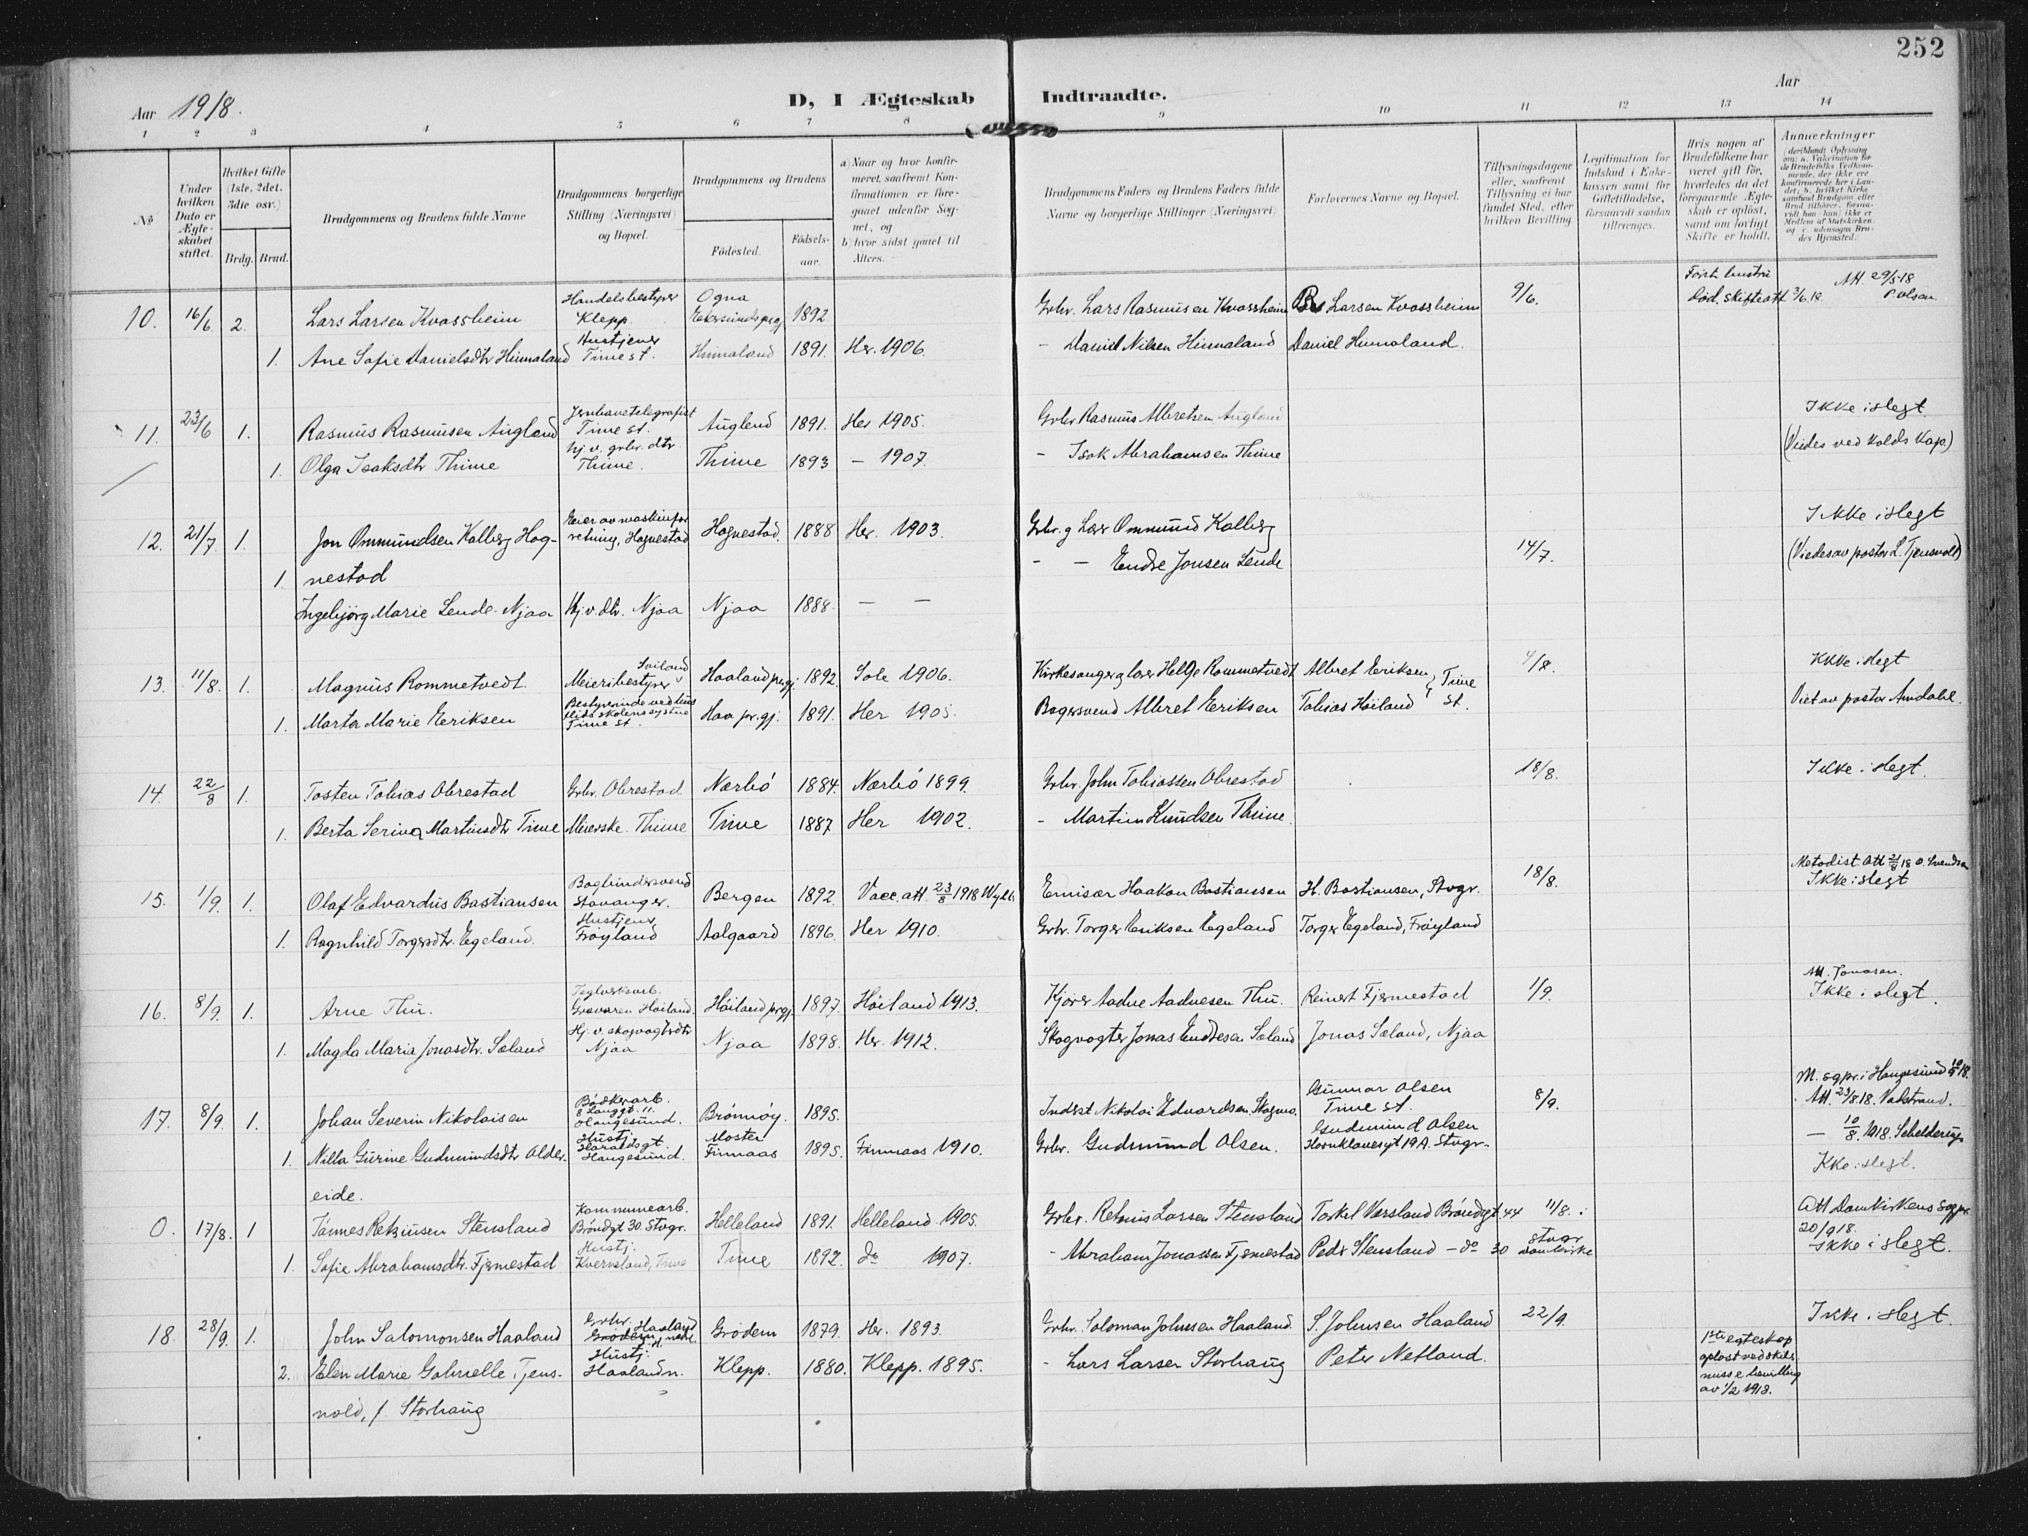 252
Aar 1918.
D, I Ægteskab Indtraadte.
Aar
1 2 3 4 5 6 7 8 9 10 11 12 13 14
No
Under hvilken Dato er Ægteskabet stiftet.
Hvilket Gifte (1ste, 2det, 3die osv.)
Brdg. Brud.
Brudgommens og Brudens fulde Navne
Brudgommens borgerlige Stilling (Næringsvei) og Bopæl.
Brudgommens og Brudens
Fødested.
Fødselsaar.
a) Naar og hvor konfirmeret, saafremt Konfirmationen er foregaaet udenfor Sognet, og
b) hvor sidst gaaet til Alters.
Brudgommens Faders og Brudens Faders fulde Navne og borgerlige Stillinger (Næringsvei)
Forlovernes Navne og Bopæl.
Tillysningsdagene eller, saafremt Tillysning ei har fundet Sted, efter hvilken Bevilling
Legitimation for Indskud i Enkekassen samt for Giftetilladelse, forsaavidt saadan tiltrænges.
Hvis nogen af Brudefolkene har været gift før, hvorledes da det foregaaende Ægteskab er opløst, samt om lovligt Skifte er holdt.
Anmærkninger
10. 16/6 2. Lars Larsen Kvassheim Handelsbestyrer Klepp. Ogna Ekersunds prgj 1892 Grbr. Lars Rasmussen Kvassheim Larsen Kvassheim 9/6. død. skifteatt 3/6.18 Att 29/5-18 P. Olsen
1. Ane Sofie Danielsdtr Hinnaland Hustjener Time st. Hinnaland 1891. Her. 1906. - Daniel Nilsen Hinnaland Daniel Hinnaland.
11. 23/6 1. Rasmus Rasmusen Augland Jernbanetelegrafist Time st. Auglend 1891. Her 1905. Grbr Rasmus Albretsen Augland Ikke i slegt.
1. Olga Isaksdtr Thime hj. v. grbr. dtr Thime. Thime 1893 — 1907. - Isak Abrahamsen Thime (Viedes ved Kolds Kap.)
12. 21/7 1. Jon Ommundsen Kalberg Hognestad Eier av maskinforretning, Hognestad Hognestad. 1888 Her. 1903. Grbr. g Lær Ommund Kalberg 14/7. Ikke i slegt
1. Ingebjørg Marie Lende-Njaa Hj. v. dtr. Njaa Njaa 1888. — — - — Endre Jonsen Lende (Viedes av pastor L. Tjensvold)
13. 11/8. 1. Magnus Rommetvedt. Meieribestyrer Sviland Haaland prgj. 1892. Sole 1906. Kirkesanger g lærer Helge Rommetvedt Albret Eriksen Time st. 4/8. Ikke i slegt
1. Marta Marie Eriksen Bestyrerinde ved husflidsskolens systue Time st. Haa pr.gj. 1891. Her 1905. Bagersvend Albret Eriksen Tobias Høiland Viet av pastor Amdahl.
14. 22/8 1. Tosten Tobias Obrestad Grbr. Obrestad Nærbø 1884. Nærbø 1899. Grbr John Tobiassen Obrestad 18/8. Ikke i slegt.
1. Berta Serina Martinsdtr Time Meierske. Thime Time 1887 Her 1902. - Martin Knudsen Thime.
15. 1/9. 1. Olaf Edvardus Bastiansen Bogbindersvend Stavanger. Bergen 1892. Vacc. att. 23/8 1918 Emisær Haakon Bastiansen H. Bastiansen, Stvgr. 18/8. Metodist. Att 21/8 18 O. Svendsen Ikke i slegt
1. Ragnhild Torgersdtr. Egeland. Hustjener Frøyland Aalgaard 1896. Her 1910. Grbr. Torger Eriksen Egeland Torger Egeland, Frøyland
16. 8/9. 1. Arne Thu. Teglverksarb. Gravaren Høiland. Høiland prgj. 1897. Høiland 1913. Kjører Aadne Aadnesen Thu. Reinert Fjermestad 1/9. Att. Jonasen. Ikke i slegt.
1. Magda Maria Jonasdtr. Sæland Hj. v. skogvogtrdtr Njaa Njaa 1898. Her. 1912. Skogvogter Jonas Endresen Sæland Jonas Sæland, Njaa
17. 8/9. 1. Johan Severin Nikolaisen Bødkerarb. Langgt. 11. Haugesund. Brønnøy. 1895. Inderst Nikolai Edvardsen, Gunnar Olsen Time st. 8/9. M. sgpr. i Haugesund 10/9 18. Att. 23/8.18. Vakstrand.
1. Nilla Gurine Gudmundsdtr Aldereide. Hustj. Haraldsgt. Haugesund. Moster Finnaas 1895. Finnaas 1910. Grbr. Gudmund Olsen. Gudmund Olsen Hornklavesgt 19A. Stvgr. — 10/8. 1918. Schelderup Ikke i slegt.
0. 17/8. 1 Tønnes Rekinusen Stensland Kommunearb. Brøndgt 30. Stvgr. Helleland 1891. Helleland 1905. Grbr. Larsen Stensland Torkel Versland Brøndgt. 44 11/8. i Stvgr Domkirke Att Domkirkens sogpr. 20/9 18.
1. Sofie Abrahamsdtr. Fjermestad Hustj. Kvernland, Time Time 1892. do 1907. - Abraham Jonassen Fjermestad Peder Stensland - do 30 Ikke i slegt.
18. 28/9. 1. John Salomonsen Haaland Grbr. Haaland Grødem 1879. Her. 1893. Grbr. Saloman Johnsen Haaland. S. Johnsen Haaland 22/9. Ikke i slegt.
2. Elen Marie Gabrielle Tjensvold, f Storhaug Hustj. Haaland n. Klepp. 1880. Klepp. 1895. - Lars Larsen Storhaug Peter Netland. 1ste egteskap opløst ved skilsmissebevilling av 1/2 1918.